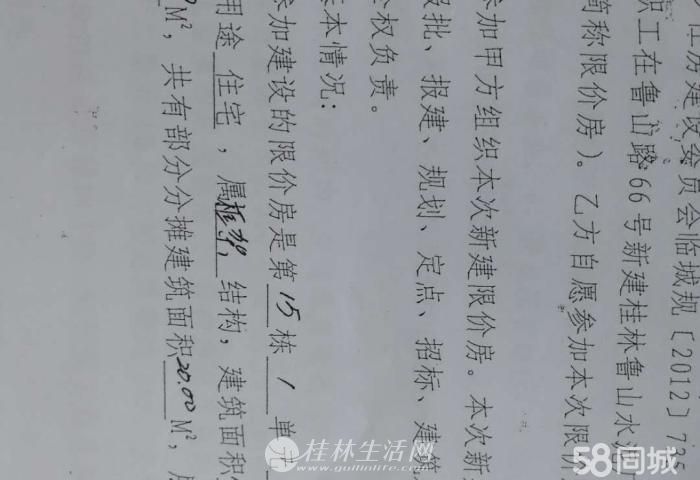 住房建设委员会临城规〔2012〕7
职工在鲁山路66号新建桂林鲁山水
简称限价房）。乙方自愿参加本次限
参加甲方组织本次新建限价房。本次新
报批、报建、规划、定点、招标、建筑
全权负责。
基本情况：
参加建设的限价房是第15栋1单
用途住宅，属框架结构，建筑面积
M²，共有部分分摊建筑面积20.00M²，
桂林生活网
www.guilinlife.com
58同城